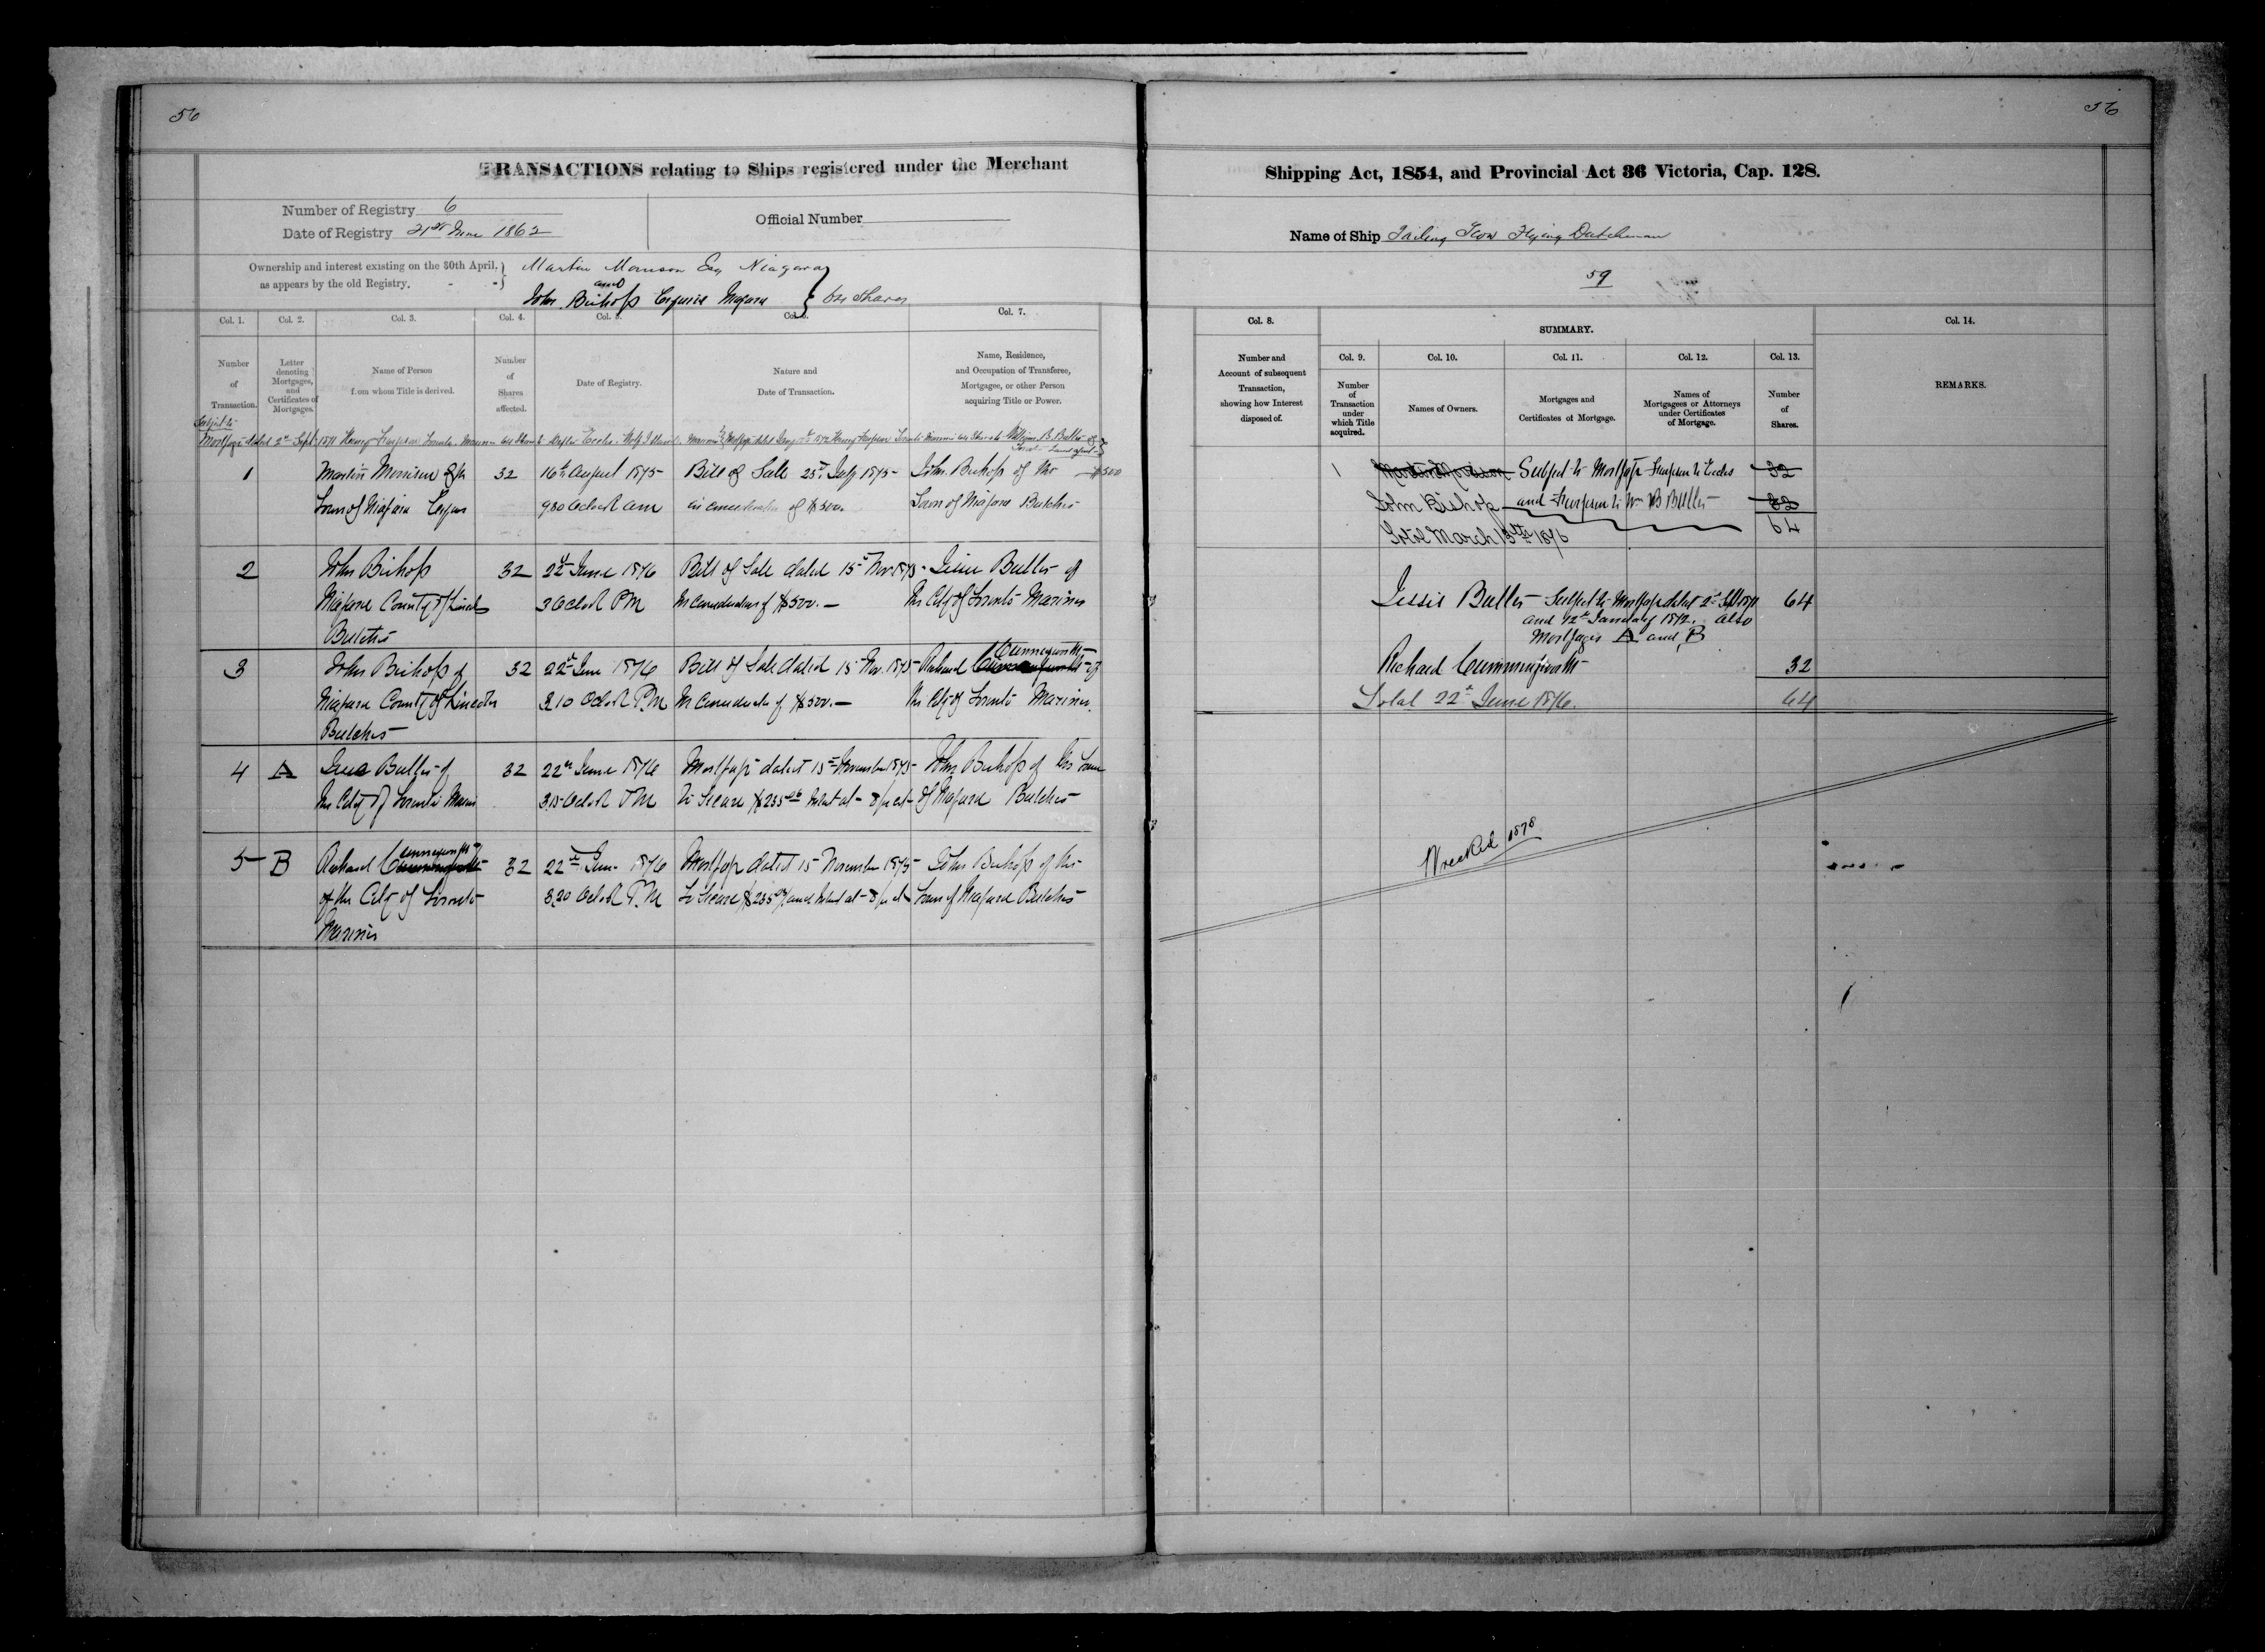 56
56
TRANSACTIONS relating to Ships registered under the Merchant
Shipping Act, 1854, and Provincial Act 36 Victoria, Cap. 128.
Number of Registry 6
Date of Registry 21st June 1862
Official Number
Name of Ship Sailing Scow Flying Dutchman
59
Ownership and interest existing on the 30th April, as appears by the old Registry.
Martin Morrison Esq Niagara
and
John Bishop Esquire Niagara
64 Shares
Col. 1.
Col. 2.
Col. 3.
Col. 4.
Col. 5.
Col. 6.
Col. 7.
Col. 8.
SUMMARY.
Col. 14.
Number of Transaction.
Letter denoting Mortgages, and Certificates of Mortgages.
Name of Person from whom Title is derived.
Number of Shares affected.
Date of Registry.
Nature and Date of Transaction.
Name, Residence, and Occupation of Transferee, Mortgagee, or other Person acquiring Title or Power.
Number and Account of subsequent Transaction, showing how Interest disposed of.
Col. 9.
Col. 10.
Col. 11.
Col. 12.
Col. 13.
Number of Transaction under which Title acquired.
Names of Owners.
Mortgages and Certificates of Mortgage.
Names of Mortgagees or Attorneys under Certificates of Mortgage.
Number of Shares.
REMARKS.
Subject to
Mortgage dated 2nd Sept 1871 Henry Simpson Toronto Mariner 64 Shares
William B. Butler of
1 Martin Morrison of the 32 16th August 1875 Bill of Sale 25th July 1875 John Bishop of the $500
Town of Niagara 9.30 Oclock am in consideration of $500. Town of Niagara Butcher
1 Martin Morrison Subject to Mortgage Simpson to Eccles 32
John Bishop and Simpson to Wm B Butler 32
64
Total March 13th 1876
2 John Bishop 32 22d June 1876 Bill of Sale dated 15th Nov 1875 Jessie Butler of
Niagara County of Lincoln 3 Oclock PM In consideration of $500.— the City of Toronto Mariner
Butcher
Jessie Butler Subject to Mortgage dated 2nd Sept 1871 64
and 12th January 1872. also
Mortgages A and B
3 John Bishop of 32 22d June 1876 Bill of Sale dated 15th Nov. 1875 Richard Cunningworth of
Niagara County of Lincoln 3.10 Oclock P.M In consideration of $500.— the City of Toronto Mariner.
Butcher
Richard Cummingworth 32
Total 22d June 1876. 64
4 A Jessie Butler of 32 22d June 1876 Mortgage dated 15th November 1875 John Bishop of the Town
the City of Toronto Mariner 3.15 Oclock PM to Secure $235 Interest at 8 per ct of Niagara Butcher
5 B Richard Cunningworth of 32 22d June 1876 Mortgage dated 15 November 1875 John Bishop of the
of the City of Toronto 3.20 Oclock P.M to Secure $235 and Interest at 8 per ct Town of Niagara Butcher
Mariner
Wrecked 1878